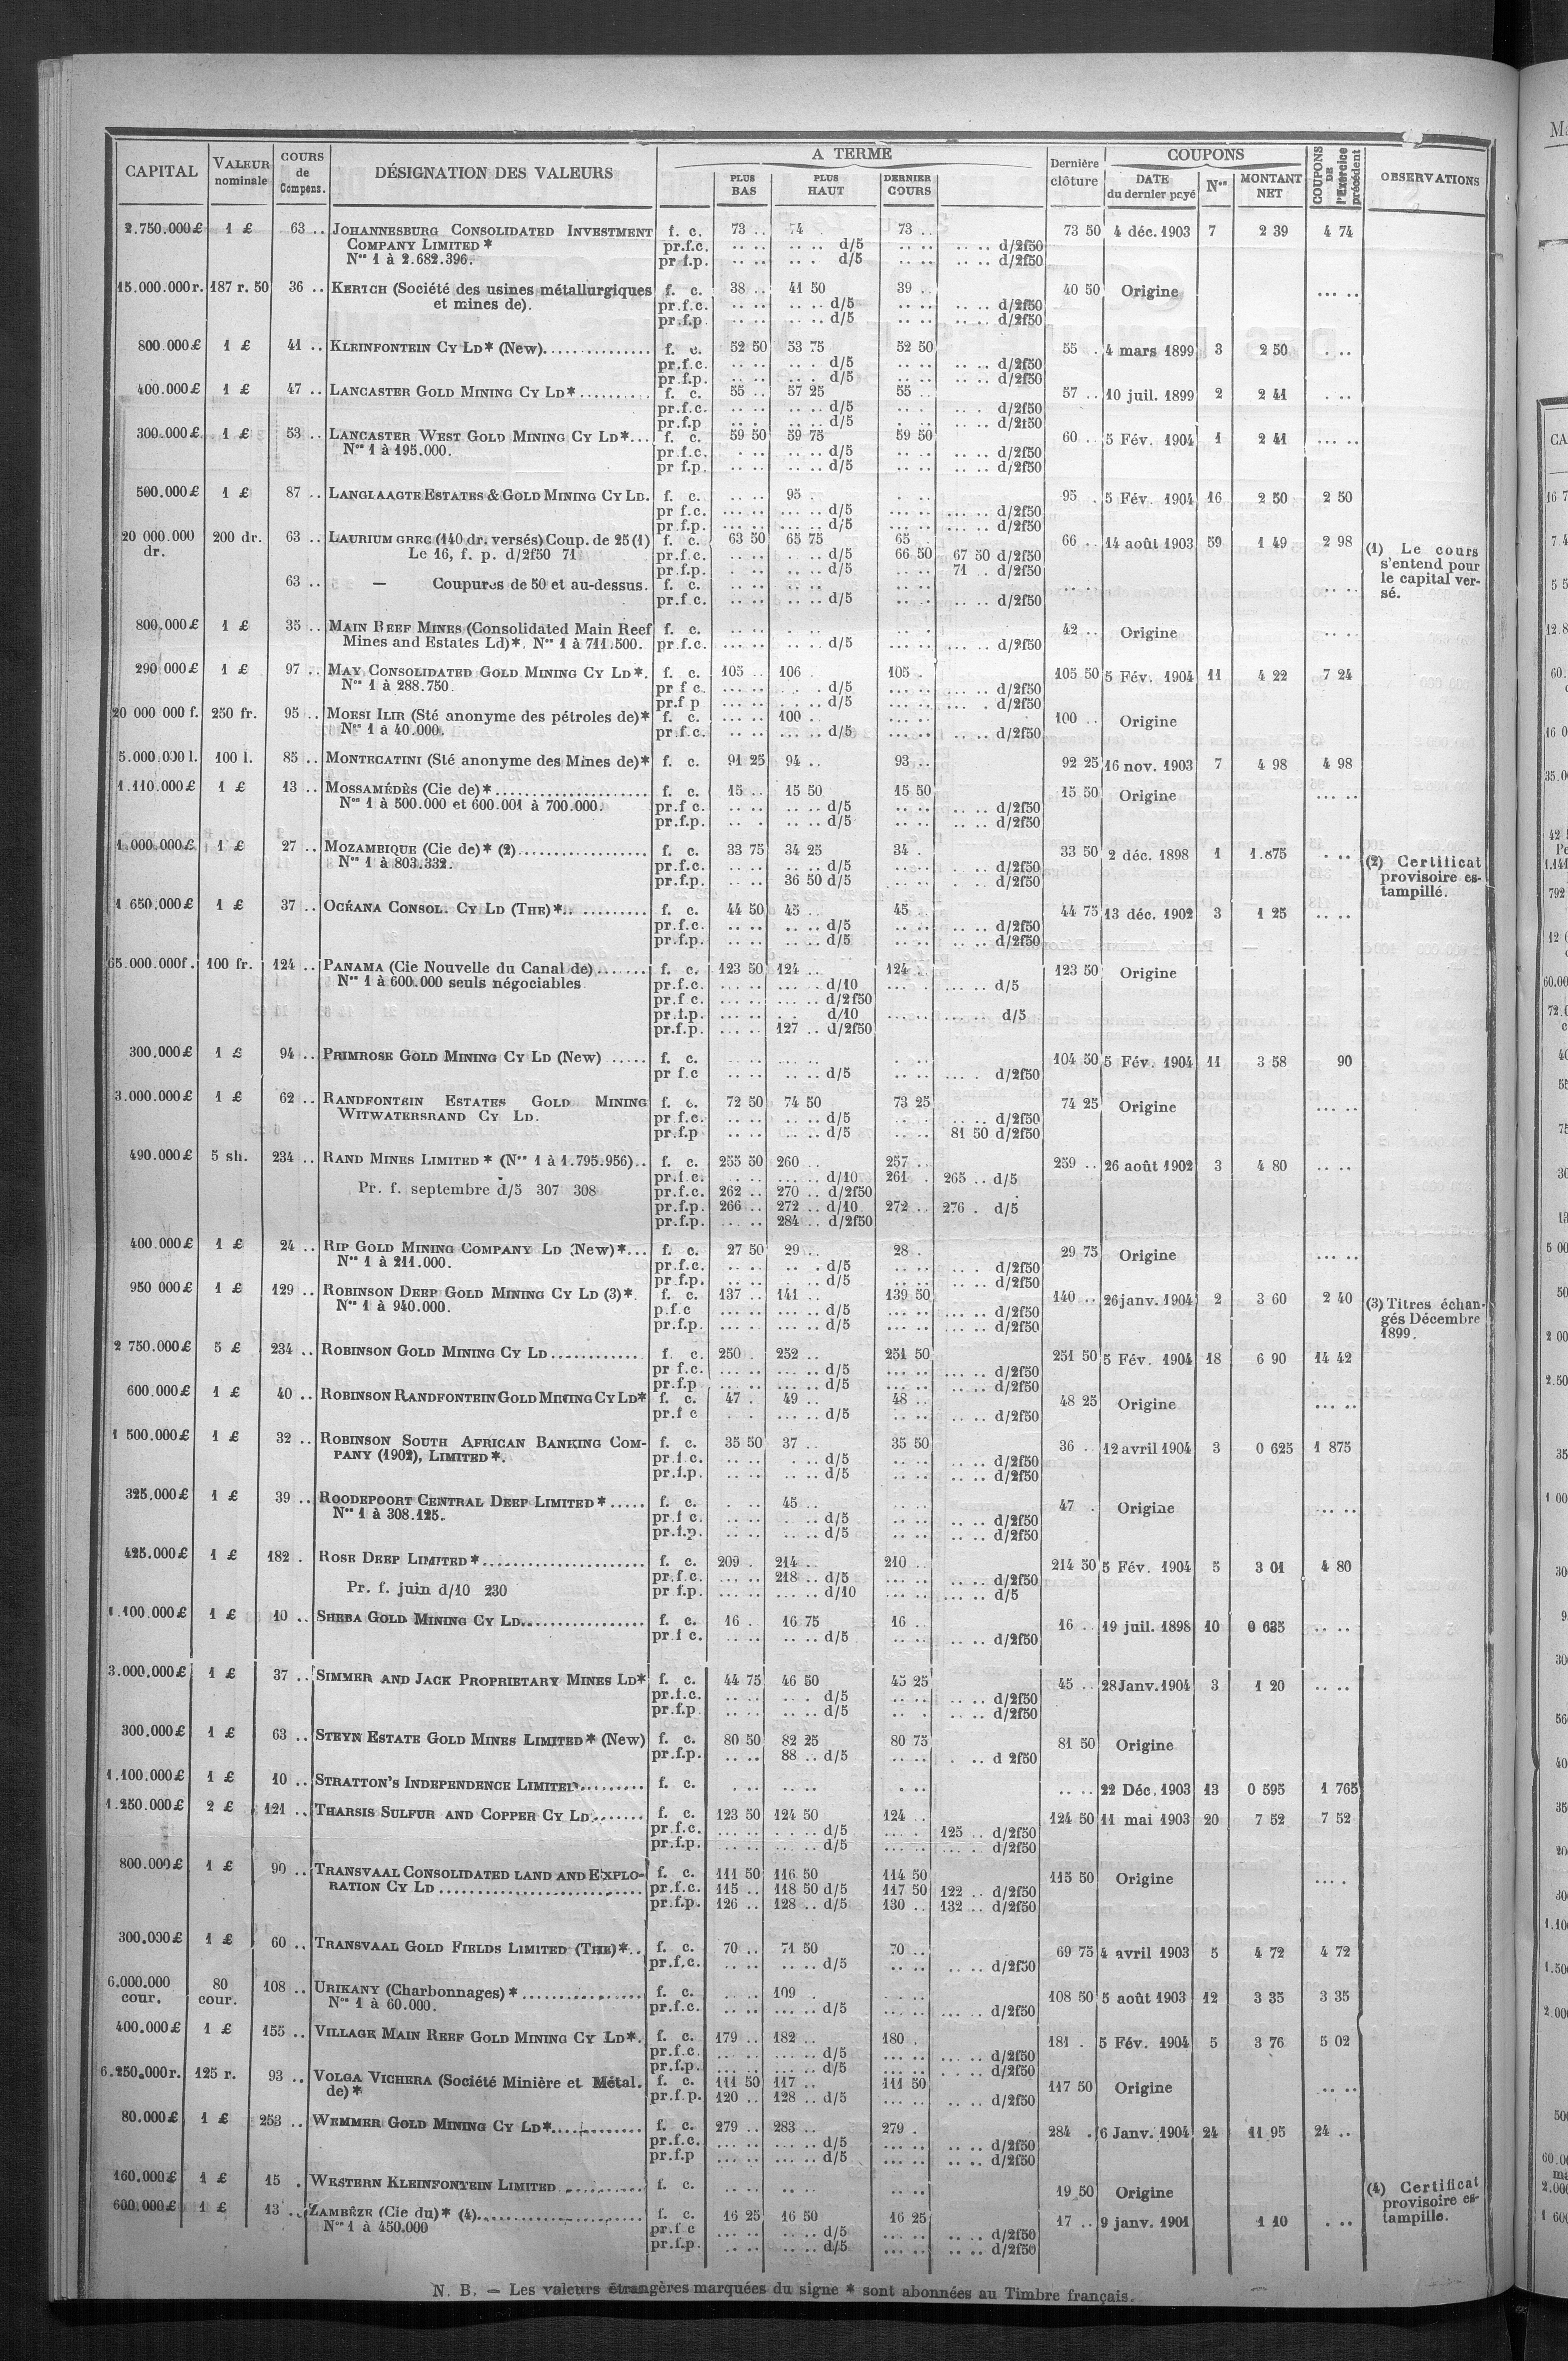 CAPITAL | VALEUR nominale | COURS de Compens. | DÉSIGNATION DES VALEURS | A TERME | PLUS BAS | PLUS HAUT | DERNIER COURS | Dernière clôture | COUPONS | DATE du dernier payé | Nos | MONTANT NET | COUPONS DE l'Exercice précédent | OBSERVATIONS
2.750.000 £ 1 £ 63 .. JOHANNESBURG CONSOLIDATED INVESTMENT f. c. 73 .. 74 73 .. 73 50 4 déc. 1903 7 2 39 4 74
COMPANY LIMITED * pr.f.c. .. .. .. .. d/5 .. .. .. .. d/2f50
Nos 1 à 2.682.396. pr f.p. .. .. .. . d/5 .. .. .. .. d/2f50
15.000.000 r. 187 r. 50 36 .. KERTCH (Société des usines métallurgiques f. c. 38 .. 41 50 39 .. 40 50 Origine ... ..
et mines de). pr.f.c. .. .. .. .. d/5 .. .. .. .. d/2f50
pr.f.p .. .. .. .. d/5 .. .. .. .. d/2f50
800.000 £ 1 £ 41 .. KLEINFONTEIN CY LD* (New).............. f. c. 52 50 53 75 52 50 55 . 4 mars 1899 3 2 50 . ..
pr.f.c. .. .. .. . d/5 .. .. .. .. d/2f50
pr.f.p. .. .. .. . d/5 .. .. .. .. d/2f50
400.000 £ 1 £ 47 .. LANCASTER GOLD MINING CY LD*.......... f. c. 55 .. 57 25 55 .. 57 .. 10 juil. 1899 2 2 41 . ..
pr.f.c. .. .. .. .. d/5 .. .. .. . d/2f50
pr.f.p .. .. .. .. d/5 . .. .. .. d/2f50
300.000 £ 1 £ 53 .. LANCASTER WEST GOLD MINING CY LD*... f. c. 59 50 59 75 59 50 60 .. 5 Fév. 1904 1 2 41 ... ..
Nos 1 à 195.000. pr.f.c. . .. .. .. d/5 .. .. .. .. d/2f50
pr f.p. .. .. .. .. d/5 .. .. .. .. d/2f50
500.000 £ 1 £ 87 .. LANGLAAGTE ESTATES & GOLD MINING CY LD. f. c. .. .. 95 . . .. 95 . 5 Fév. 1904 16 2 50 2 50
pr f.c. ... .. ... .. d/5 ... .. ... .. d/2f50
pr.f.p. ... .. ... .. d/5 ... .. ... .. d/2f50
20 000.000 dr. 200 dr. 63 .. LAURIUM GREC (140 dr. versés) Coup. de 25 (1) f. c. 63 50 65 75 65 66 .. 14 août 1903 59 1 49 2 98
Le 16, f. p. d/2f50 71 pr.f.c. .. .. .. . d/5 66 50 67 50 d/2f50
pr.f.p. .. .. .. . d/5 .. .. 71 .. d/2f50
63 .. — Coupures de 50 et au-dessus. f. c. .. .. .. .. .. . .. .. .. ..
pr.f c. .. .. .. .. d/5 .. . .. .. d/2f50
(1) Le cours
s'entend pour
le capital ver-
sé.
800.000 £ 1 £ 35 .. MAIN REEF MINES (Consolidated Main Reef f. c. .. .. . .. .. . 42 .. Origine .. ..
Mines and Estates Ld)*. Nos 1 à 711.500. pr.f.c. ... .. .. .. d/5 ... .. ... .. d/2f50
290 000 £ 1 £ 97 .. MAY CONSOLIDATED GOLD MINING CY LD*. f. c. 105 .. 106 105 . 105 50 5 Fév. 1904 11 4 22 7 24
Nos 1 à 288.750. pr f c. ... .. . . . d/5 ... .. ... .. d/2f50
pr.f p ... .. . .. d/5 ... .. ... . d/2f50
20 000 000 f. 250 fr. 95 .. MOESI ILIR (Sté anonyme des pétroles de)* f. c. ... .. 100 . ... .. 100 .. Origine
Nos 1 à 40.000. pr.f.c. .. .. ... .. d/5 .. .. .. .. d/2f50
5.000 000 l. 100 l. 85 .. MONTECATINI (Sté anonyme des Mines de)* f. c. 91 25 94 .. 93 .. 92 25 16 nov. 1903 7 4 98 4 98
1.110.000 £ 1 £ 13 .. MOSSAMÉDÈS (Cie de)*.................... f. c. 15 .. 15 50 15 50 15 50 Origine ... ..
Nos 1 à 500.000 et 600.001 à 700.000. pr.f c. .. .. .. .. d/5 .. .. .. .. d/2f50
pr.f.p. .. . .. .. d/5 .. .. .. .. d/2f50
1.000.000 £ 1 £ 27 .. MOZAMBIQUE (Cie de)* (2)................. f. c. 33 75 34 25 34 . 33 50 2 déc. 1898 1 1.875 . ..
Nos 1 à 803.332. pr.f.c. .. .. .. .. d/5 .. .. . .. d/2f50
pr.f.p. .. .. 36 50 d/5 .. .. . . d/2f50
(2) Certificat
provisoire es-
tampillé.
1.650.000 £ 1 £ 37 .. OCÉANA CONSOL. CY LD (THE)*.. ......... f. c. 44 50 45 .. 45 44 75 13 déc. 1902 3 1 25 .. ..
pr.f.c. .. .. .. .. d/5 .. .. .. .. d/2f50
pr.f.p. .. .. .. .. d/5 .. .. .. .. d/2f50
65.000.000 f. 100 fr. 124 .. PANAMA (Cie Nouvelle du Canal de)....... f. c. 123 50 124 .. 124 . 123 50 Origine
Nos 1 à 600.000 seuls négociables pr.f.c. ... .. ... .. d/10 ... . ... .. d/5
pr.f c. ... .. ... .. d/2f50
pr.f.p. ... .. . . d/10 ... .. ... .. d/5
pr.f.p. ... .. 127 .. d/2f50
300.000 £ 1 £ 94 .. PRIMROSE GOLD MINING CY LD (New) ..... f. c. .. .. ... .. . .. 104 50 5 Fév. 1904 11 3 58 90
pr f.c .. .. .. .. d/5 .. .. ... . d/2f50
3.000.000 £ 1 £ 62 .. RANDFONTEIN ESTATES GOLD MINING f. c. 72 50 74 50 73 25 74 25 Origine ... ..
WITWATERSRAND CY LD. pr f.c. .. .. .. .. d/5 .. . .. .. d/2f50
pr.f.p .. .. .. .. d/5 .. .. 81 50 d/2f50
490.000 £ 5 sh. 234 .. RAND MINES LIMITED * (Nos 1 à 1.795.956).. f. c. 255 50 260 .. 257 .. 259 .. 26 août 1902 3 4 80 .. ..
pr.f.c. ... .. ... .. d/10 261 . 265 .. d/5
Pr. f. septembre d/5 307 308 pr.f.c. 262 .. 270 .. d/2f50
pr.f.p. 266 .. 272 .. d/10 272 .. 276 . d/5
pr.f.p. ... .. 284 .. d/2f50
400.000 £ 1 £ 24 .. RIP GOLD MINING COMPANY LD (New)*... f. c. 27 50 29 .. 28 . 29 75 Origine ... ..
Nos 1 à 211.000. pr.f.c. .. .. .. . d/5 .. .. . .. d/2f50
pr f.p. .. .. . .. d/5 .. .. .. .. d/2f50
950 000 £ 1 £ 129 .. ROBINSON DEEP GOLD MINING CY LD (3)*. f. c. 137 .. 141 .. 139 50 140 .. 26 janv. 1904 2 3 60 2 40
Nos 1 à 940.000. p.f.c ... .. ... .. d/5 ... .. ... .. d/2f50
pr.f.p. ... .. ... .. d/5 ... .. ... .. d/2f50
(3) Titres échan-
gés Décembre
1899.
2 750.000 £ 5 £ 234 .. ROBINSON GOLD MINING CY LD............ f. c. 250 . 252 .. 251 50 251 50 5 Fév. 1904 18 6 90 14 42
pr f.c. ... .. ... .. d/5 ... .. ... .. d/2f50
pr.f.p ... .. ... .. d/5 ... .. .. .. d/2f50
600.000 £ 1 £ 40 .. ROBINSON RANDFONTEIN GOLD MINING CY LD* f. c. 47 . 49 .. 48 .. 48 25 Origine ... ..
pr.f c . . ... .. d/5 .. .. .. .. d/2f50
1 500.000 £ 1 £ 32 .. ROBINSON SOUTH AFRICAN BANKING COM- f. c. 35 50 37 .. 35 50 36 .. 12 avril 1904 3 0 625 1 875
PANY (1902), LIMITED *. pr.f c. .. .. . .. d/5 .. .. .. .. d/2f50
pr.f.p. .. .. . .. d/5 .. .. .. .. d/2f50
325.000 £ 1 £ 39 .. ROODEPOORT CENTRAL DEEP LIMITED *..... f. c. . .. 45 .. .. .. 47 . Origine ... ..
Nos 1 à 308.125. pr.f c. .. .. . .. d/5 .. .. .. .. d/2f50
pr.f.p. .. .. . .. d/5 .. .. .. .. d/2f50
425.000 £ 1 £ 182 . ROSE DEEP LIMITED *..................... f. c. 209 . 214 .. 210 .. 214 50 5 Fév. 1904 5 3 01 4 80
pr.f.c. ... .. 218 .. d/5 ... .. .. .. d/2f50
Pr. f. juin d/10 230 pr f.p. ... .. ... .. d/10 ... .. .. .. d/5
1.100.000 £ 1 £ 10 .. SHEBA GOLD MINING CY LD................ f. c. 16 . 16 75 16 .. 16 .. 19 juil. 1898 10 0 625 .. ..
pr.f c. .. .. .. .. d/5 .. .. .. .. d/2f50
3.000.000 £ 1 £ 37 .. SIMMER AND JACK PROPRIETARY MINES LD* f. c. 44 75 46 50 45 25 45 .. 28 Janv. 1904 3 1 20 .. ..
pr.f.c. .. .. .. . d/5 .. .. .. .. d/2f50
pr.f.p .. .. .. .. d/5 .. . .. .. d/2f50
300.000 £ 1 £ 63 .. STEYN ESTATE GOLD MINES LIMITED * (New) f. c. 80 50 82 25 80 75 81 50 Origine
pr.f.p. .. .. 88 .. d/5 .. .. . .. d 2f50
1.100.000 £ 1 £ 10 .. STRATTON'S INDEPENDENCE LIMITED......... f. c. . .. .. .. . .. .. .. 22 Déc. 1903 13 0 595 1 765
1.250.000 £ 2 £ 121 .. THARSIS SULFUR AND COPPER CY LD....... f. c. 123 50 124 50 124 .. 124 50 11 mai 1903 20 7 52 7 52
pr.f.c. ... .. . .. .. d/5 ... . 125 .. d/2f50
pr.f.p. ... .. ... .. d/5 ... .. ... .. d/2f50
800.000 £ 1 £ 90 .. TRANSVAAL CONSOLIDATED LAND AND EXPLO- f. c. 111 50 116 50 114 50 115 50 Origine ... .
RATION CY LD ............................ pr.f.c. 115 .. 118 50 d/5 117 50 122 .. d/2f50
pr.f.p. 126 .. 128 .. d/5 130 .. 132 .. d/2f50
300.000 £ 1 £ 60 .. TRANSVAAL GOLD FIELDS LIMITED (THE)*.. f. c. 70 .. 71 50 70 .. 69 75 4 avril 1903 5 4 72 4 72
pr.f.c. .. .. .. .. d/5 .. .. .. .. d/2f50
6.000.000 cour. 80 cour. 108 .. URIKANY (Charbonnages) *................ f. c. .. .. 109 . .. .. 108 50 5 août 1903 12 3 35 3 35
Nos 1 à 60.000. pr.f.c. .. .. ... .. d/5 ... .. ... .. d/2f50
400.000 £ 1 £ 155 .. VILLAGE MAIN REEF GOLD MINING CY LD*. f. c. 179 .. 182 .. 180 . 181 . 5 Fév. 1904 5 3 76 5 02
pr.f.c. .. .. ... .. d/5 ... .. ... .. d/2f50
pr.f.p. ... .. ... .. d/5 ... .. ... .. d/2f50
6.250.000 r. 125 r. 93 .. VOLGA VICHERA (Société Minière et Métal. f. c. 111 50 117 .. 111 50 117 50 Origine .. ..
de) * pr.f.p. 120 .. 128 .. d/5 ... .. .. .. d/2f50
80.000 £ 1 £ 253 .. WEMMER GOLD MINING CY LD*............. f. c. 279 .. 283 .. 279 . 284 . 6 Janv. 1904 24 11 95 24 ..
pr.f.c. ... .. ... .. d/5 ... .. .. .. d/2f50
pr.f.p ... .. ... .. d/5 ... .. .. .. d/2f50
160.000 £ 1 £ 15 . WESTERN KLEINFONTEIN LIMITED ........... f. c. .. .. .. .. .. .. 19 50 Origine
600.000 £ 1 £ 13 .. ZAMBÈZE (Cie du)* (4)..................... f. c. 16 25 16 50 16 25 17 .. 9 janv. 1901 1 10 . ..
Nos 1 à 450.000 pr.f c .. .. .. .. d/5 .. .. .. .. d/2f50
pr.f.p. .. .. .. .. d/5 ... .. .. .. d/2f50
(4) Certificat
provisoire es-
tampillé.
N. B. — Les valeurs étrangères marquées du signe * sont abonnées au Timbre français.